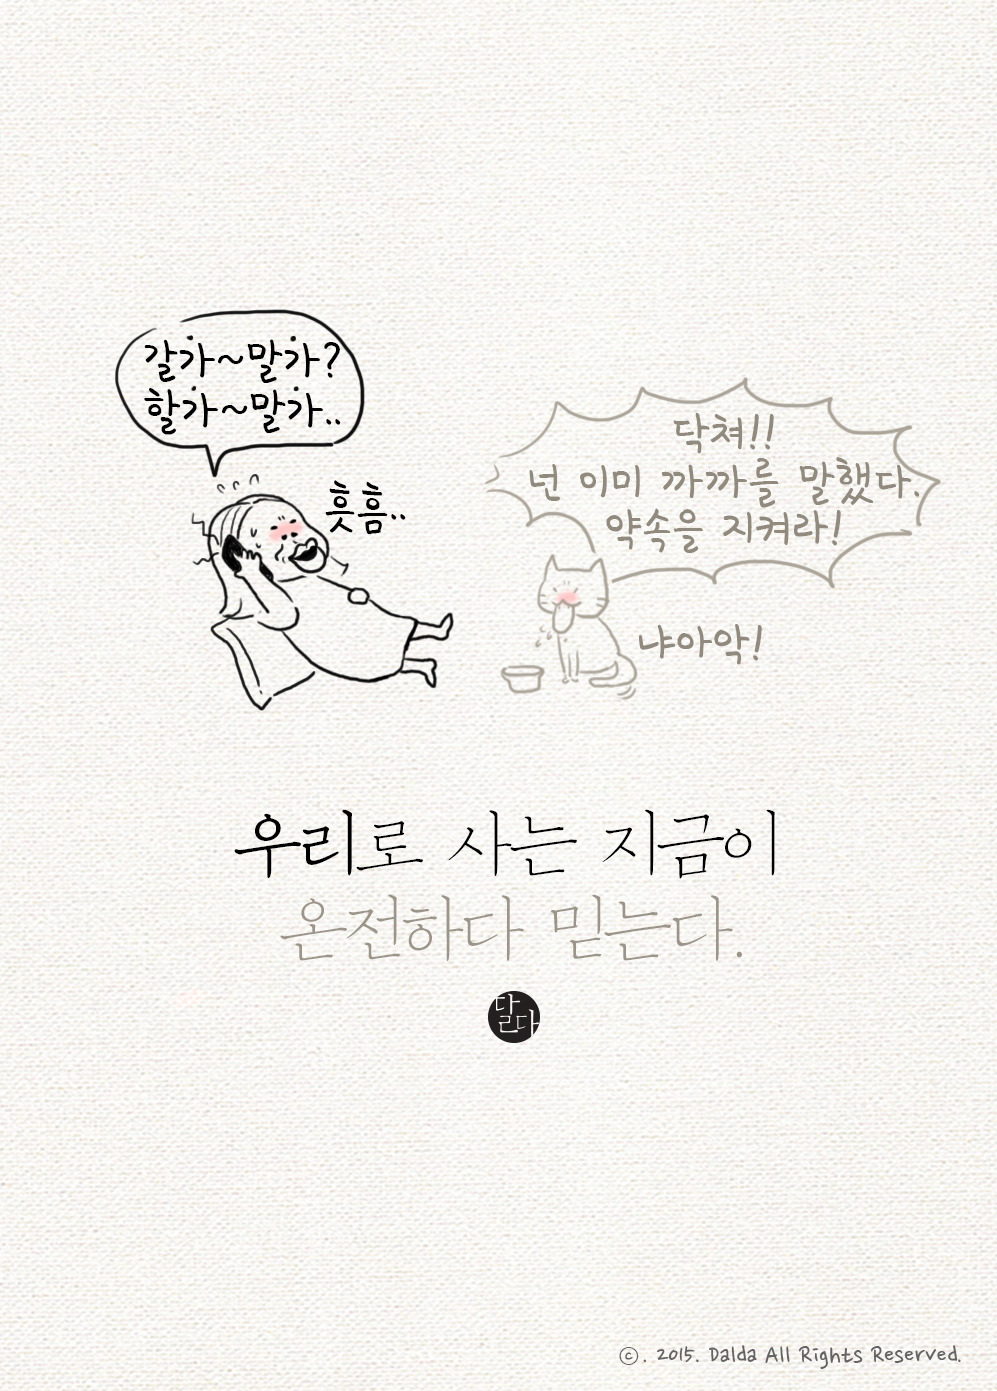 갈가~말가?
할가~말가..
흣흠..
닥쳐!!
넌 이미 까까를 말했다.
약속을 지켜라!
냐아악!
우리로 사는 지금이
온전하다 믿는다.
달다
ⓒ. 2015. Dalda All Rights Reserved.